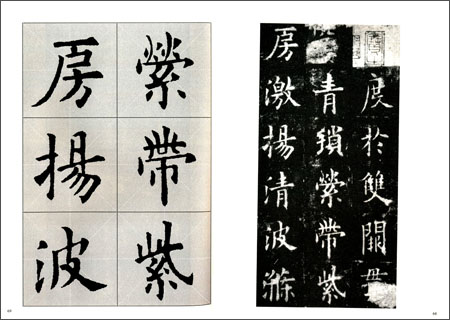 度於雙闕貫
青瑣縈帶紫
房激揚清波滌
縈帶紫
房揚波